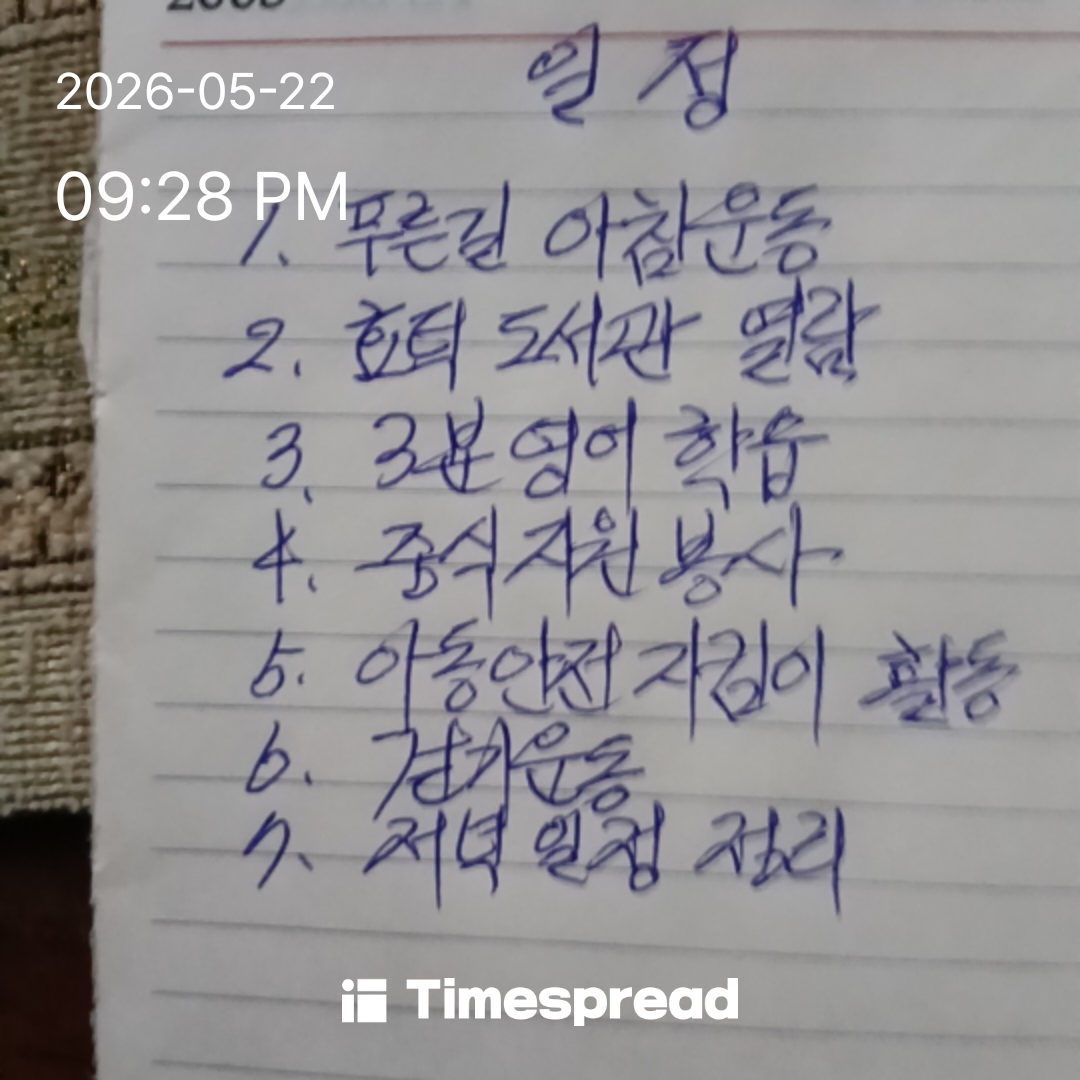 일 정
2026-05-22
09:28 PM
1. 푸른길 아침운동
2. 효덕 도서관 열람
3. 3분 영어 학습
4. 중식 자원 봉사
5. 아동안전 지킴이 활동
6. 걷기운동
7. 저녁 일정 정리
Timespread